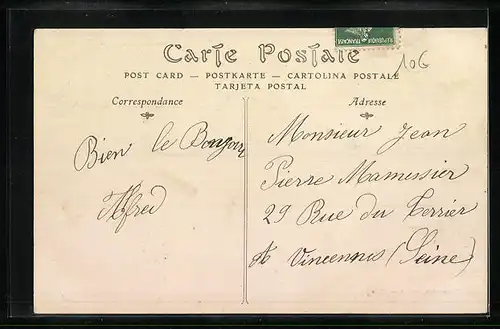 RÉPUBLIQUE FRANÇAISE
Carte Postale
106
POST CARD — POSTKARTE — CARTOLINA POSTALE
TARJETA POSTAL
Correspondance
Bien le Bonjour
Alfred
Adresse
Monsieur Jean
Pierre Mamessier
29 Rue du Terrier
à Vincennes (Seine)